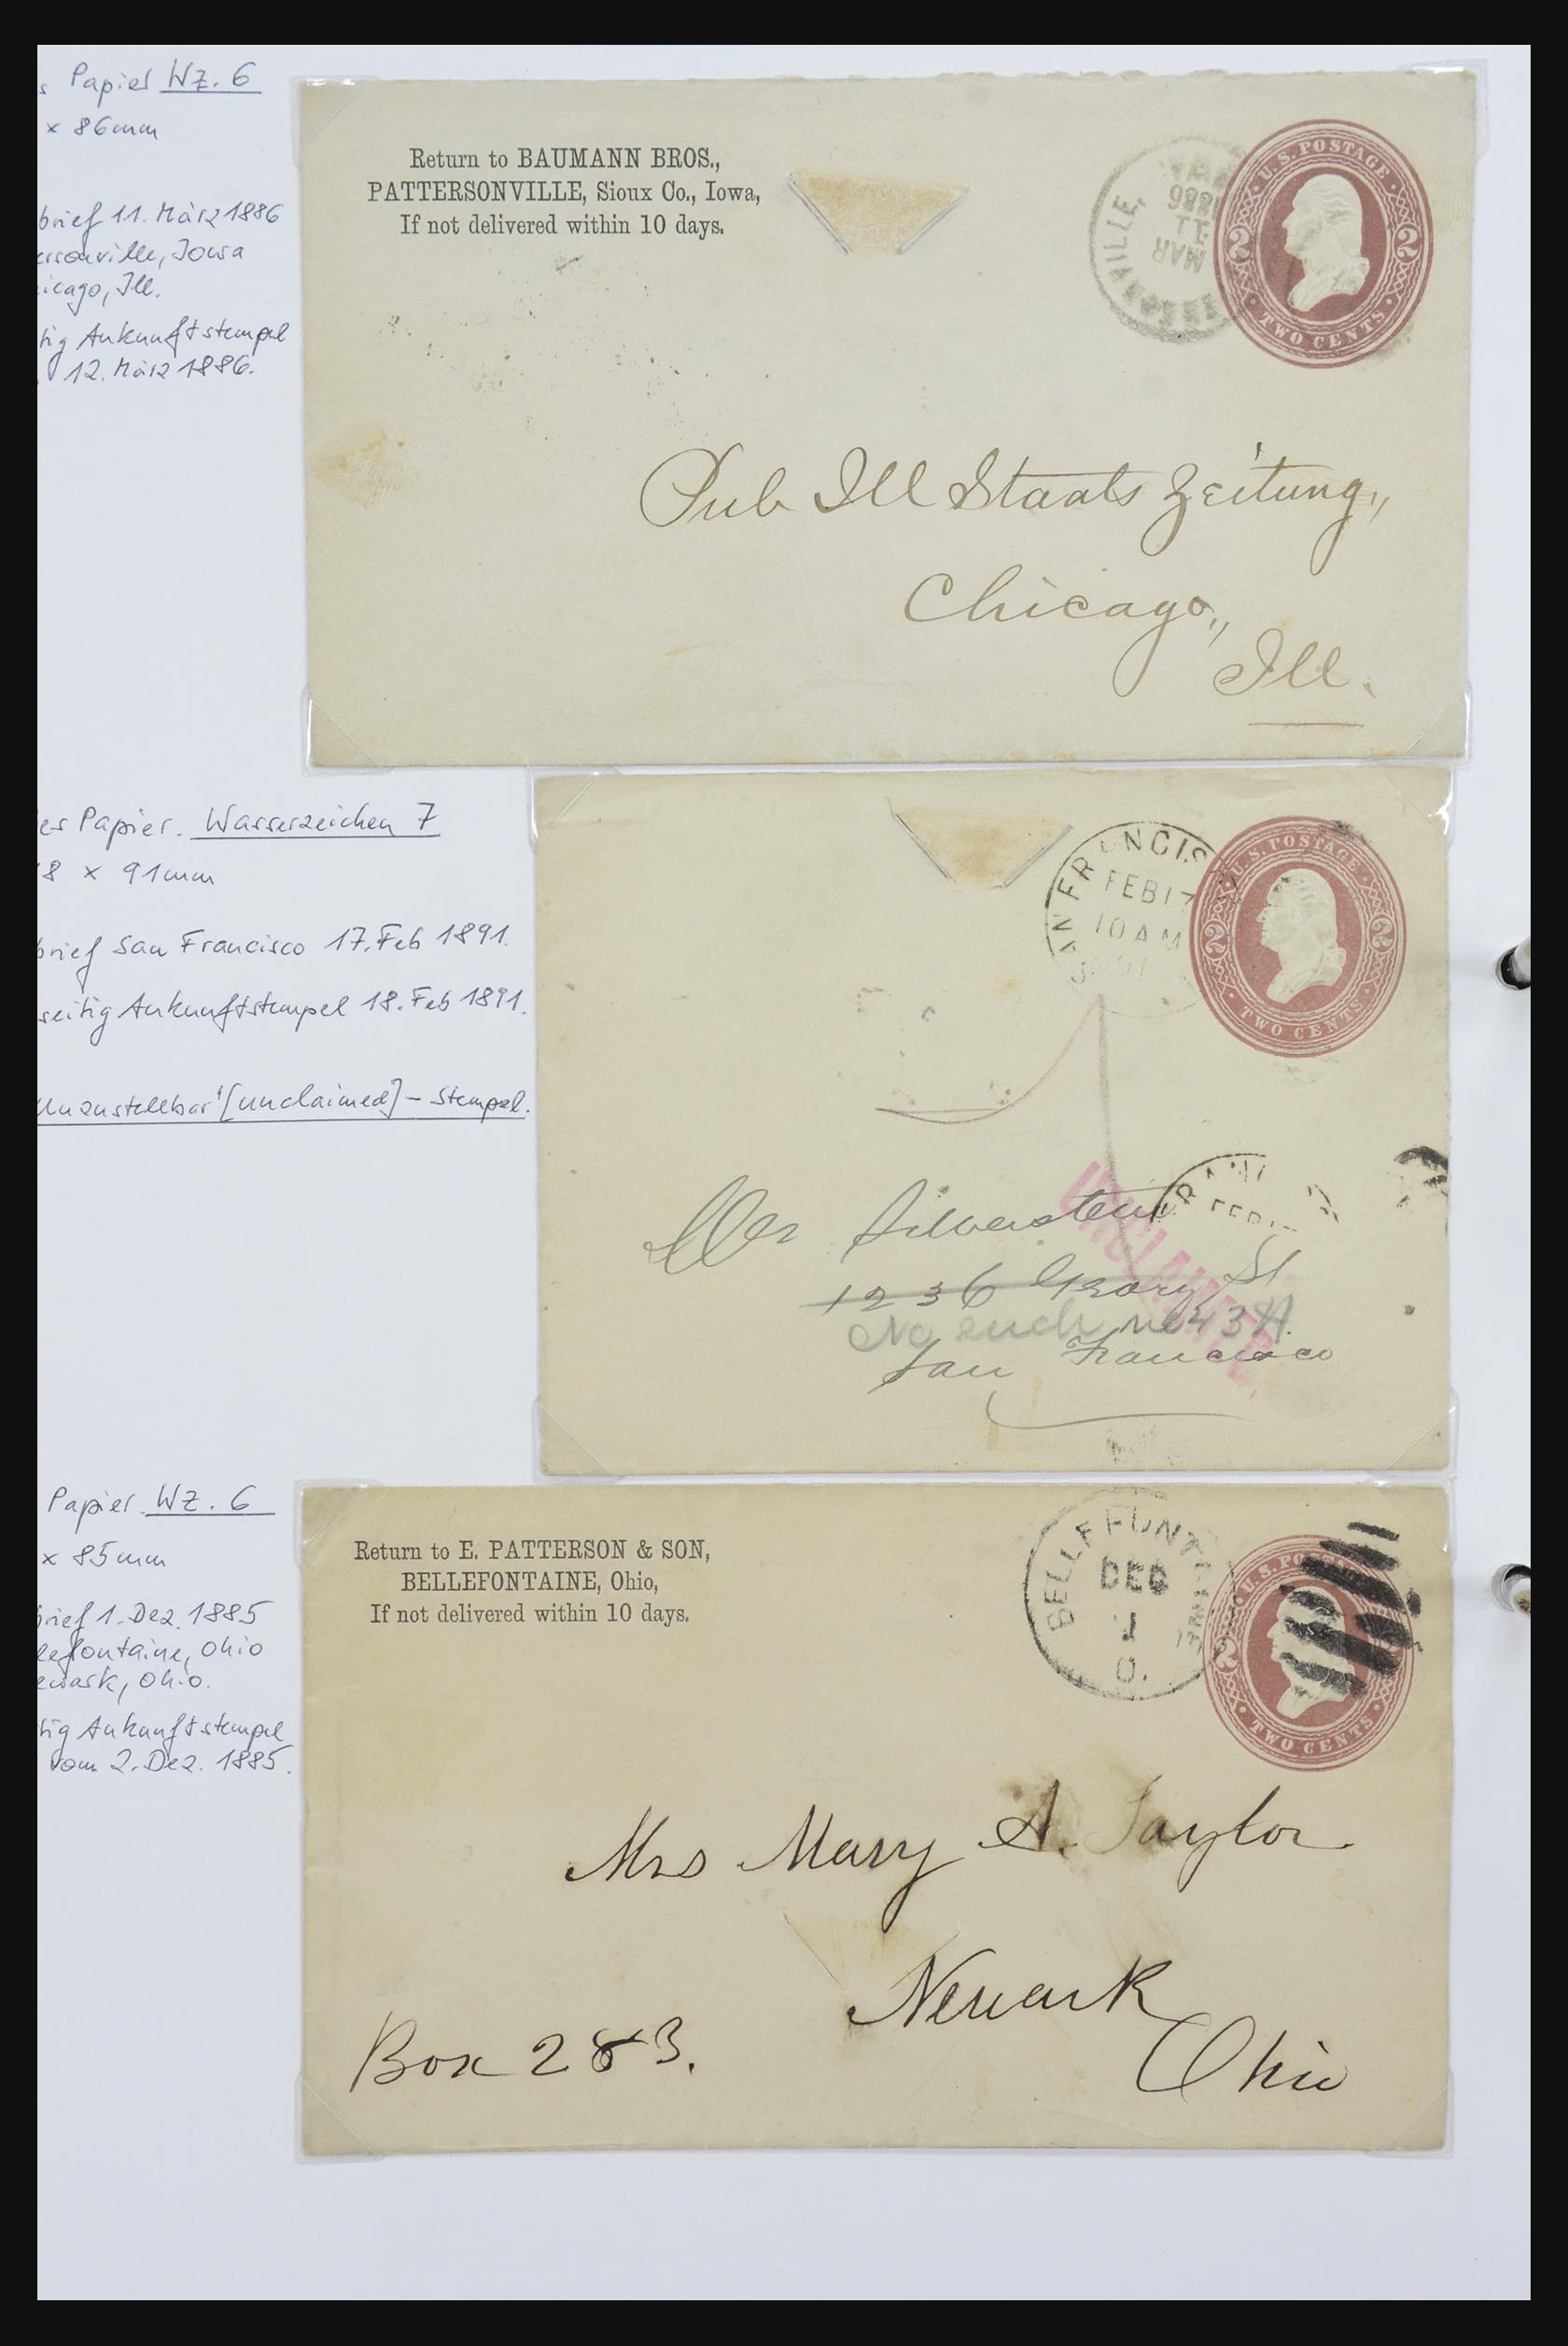 Papier Wz. 6
x 86mm
brief 11. März 1886
ersonville, Iowa
icago, Ill.
tig Ankunftstempel
12. März 1886.
Return to BAUMANN BROS.,
PATTERSONVILLE, Sioux Co., Iowa,
If not delivered within 10 days.
MAR
11
1886
U.S. POSTAGE
2 2
TWO CENTS
Pub Ill Staats Zeitung,,
Chicago,,
Ill.
es Papier. Wasserzeichen 7
8 x 91mm
brief San Francisco 17. Feb 1891.
seitig Ankunftstempel 18. Feb 1891.
Unzustellbar' [unclaimed] - Stempel.
AN FRANCIS
FEB 17
10 AM
U.S. POSTAGE
2 2
TWO CENTS
UNCLAIMED.
Silverstein
1236 Geary St
No such no
San Francisco
Papier. WZ. 6
x 85mm
brief 1. Dez. 1885
lefontaine, Ohio
ewark, Ohio.
tig Ankunftstempel
vom 2. Dez. 1885.
Return to E. PATTERSON & SON,
BELLEFONTAINE, Ohio,
If not delivered within 10 days.
BELLEFONTAINE
DEC
1
O.
U.S. POSTAGE
2
TWO CENTS
Mrs Mary A. Taylor
Newark
Ohio
Box 283.